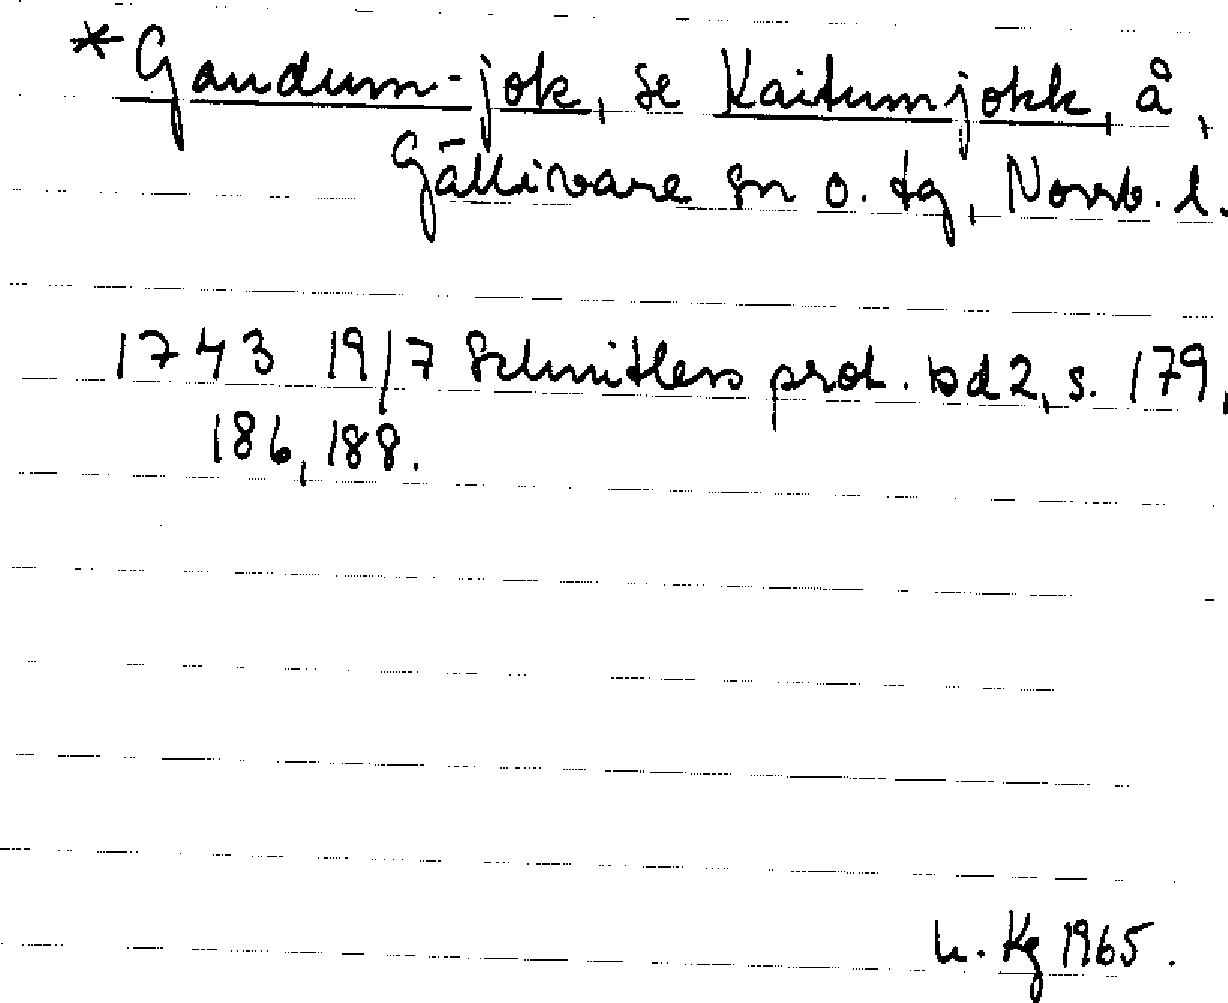 *Gaudum-jok, se Kaitumjokk, å,
Gällivare sn o. tg, Norrb. l.
1743 19/7 Schnitlers prot. bd 2, s. 179,
186, 188.
h. Kg 1965.